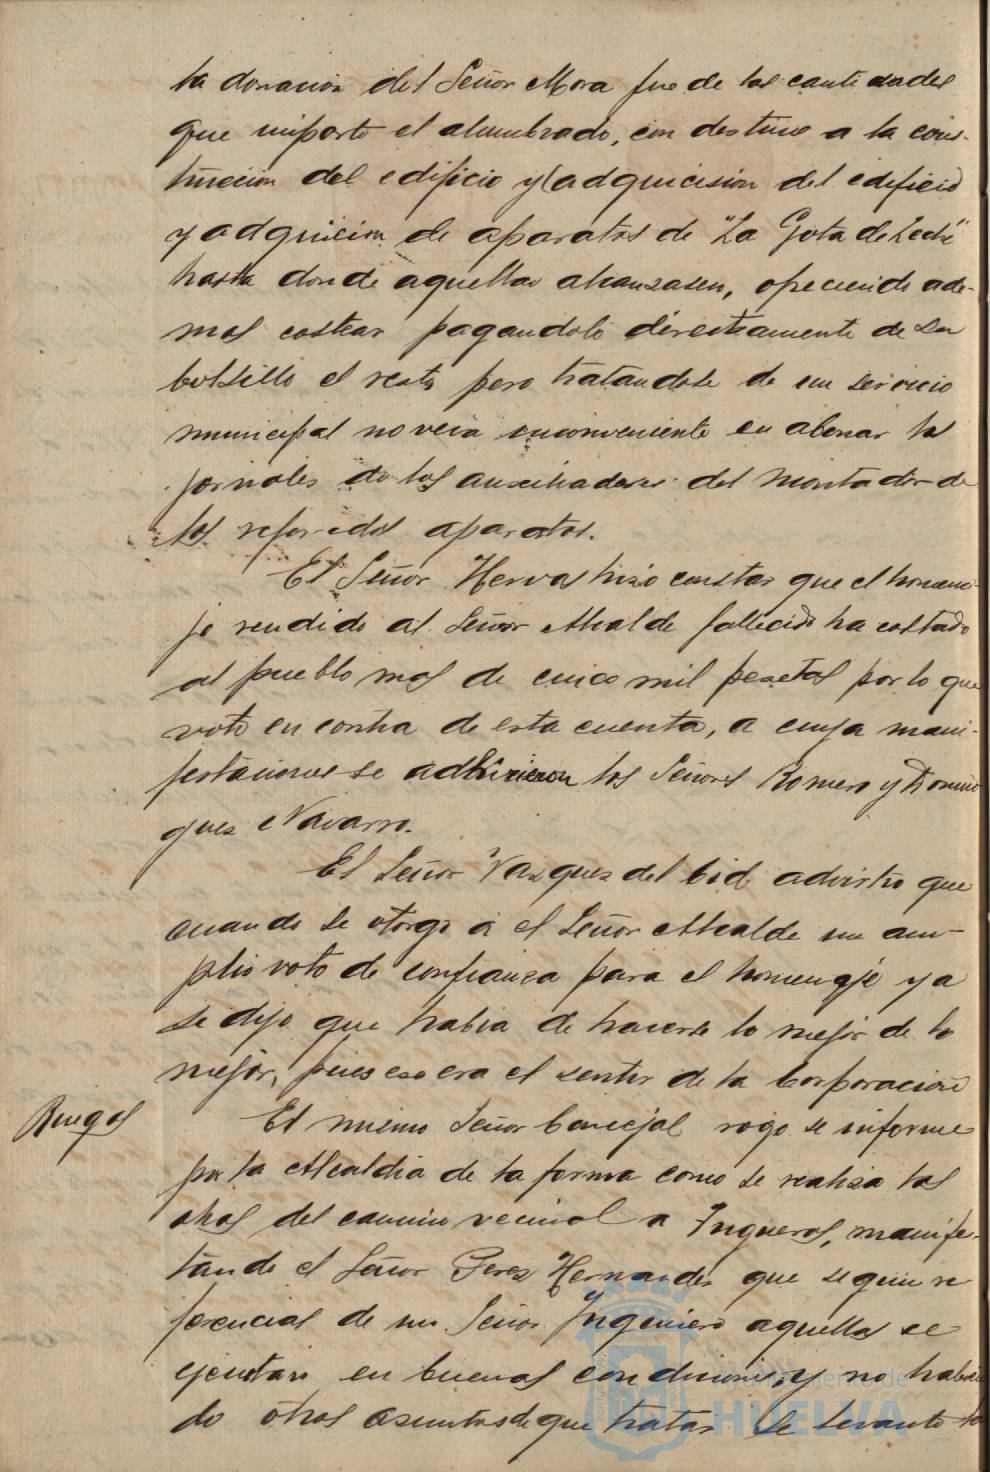 la donacion del Señor Mora fue de las cantidades
que importe el alumbrado, con destino a la cons-
truccion del edificio y (adquicision del edificio
y adquicion de aparatos de "La Gota de Leche"
hasta donde aquellas alcanzasen, ofreciendo ade-
mas costear pagandolo directamente de su
bolsillo el resto pero tratandose de un servicio
municipal no veia inconveniente en abonar los
jornales de los auxiliadores del montador de
los referidos aparatos.
El Señor Hervas hizo constar que el homena-
je rendido al Señor Alcalde fallecido ha costado
al pueblo mas de cinco mil pesetas por lo que
voto en contra de esta cuenta, a cuya mani-
festaciones se adhirieron los Señores Romero y Domin
guez Navarro.
El Señor Vazquez del Cid advirtio que
cuando se otorgo a el Señor Alcalde un am-
plio voto de confianza para el homenaje ya
se dijo que habia de hacerse lo mejor de lo
mejor, pues eso era el sentir de la Corporacion
Ruegos
El mismo Señor Concejal rogo se informe
por la Alcaldia de la forma como se realiza las
obras del camino vecinal a Trigueros, manifes-
tando el Señor Perez Hernandez que segun re
ferencias de un Señor Ingeniero aquellas se
ejecutan en buenas condiciones, y no habien
do otros asuntos de que tratar se levanto la
Ayuntamiento de
HUELVA